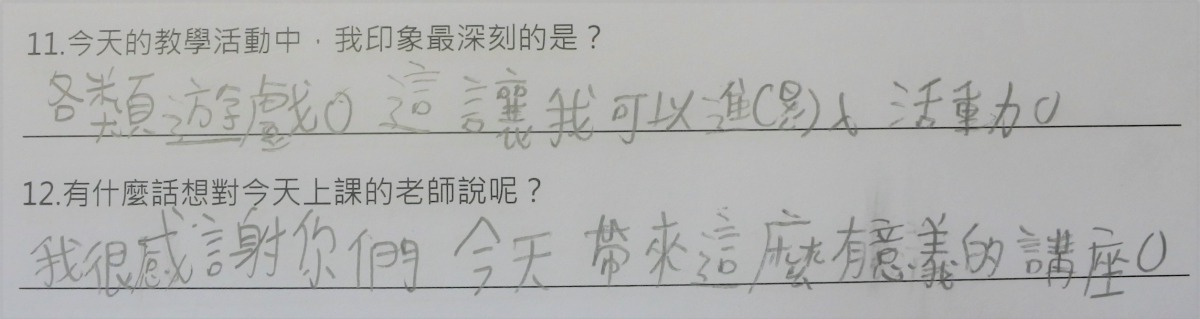 11.今天的教學活動中，我印象最深刻的是？
各類遊戲。這讓我可以進入活動。
12.有什麼話想對今天上課的老師說呢？
我很感謝你們 今天 帶來這麼有意義的講座。